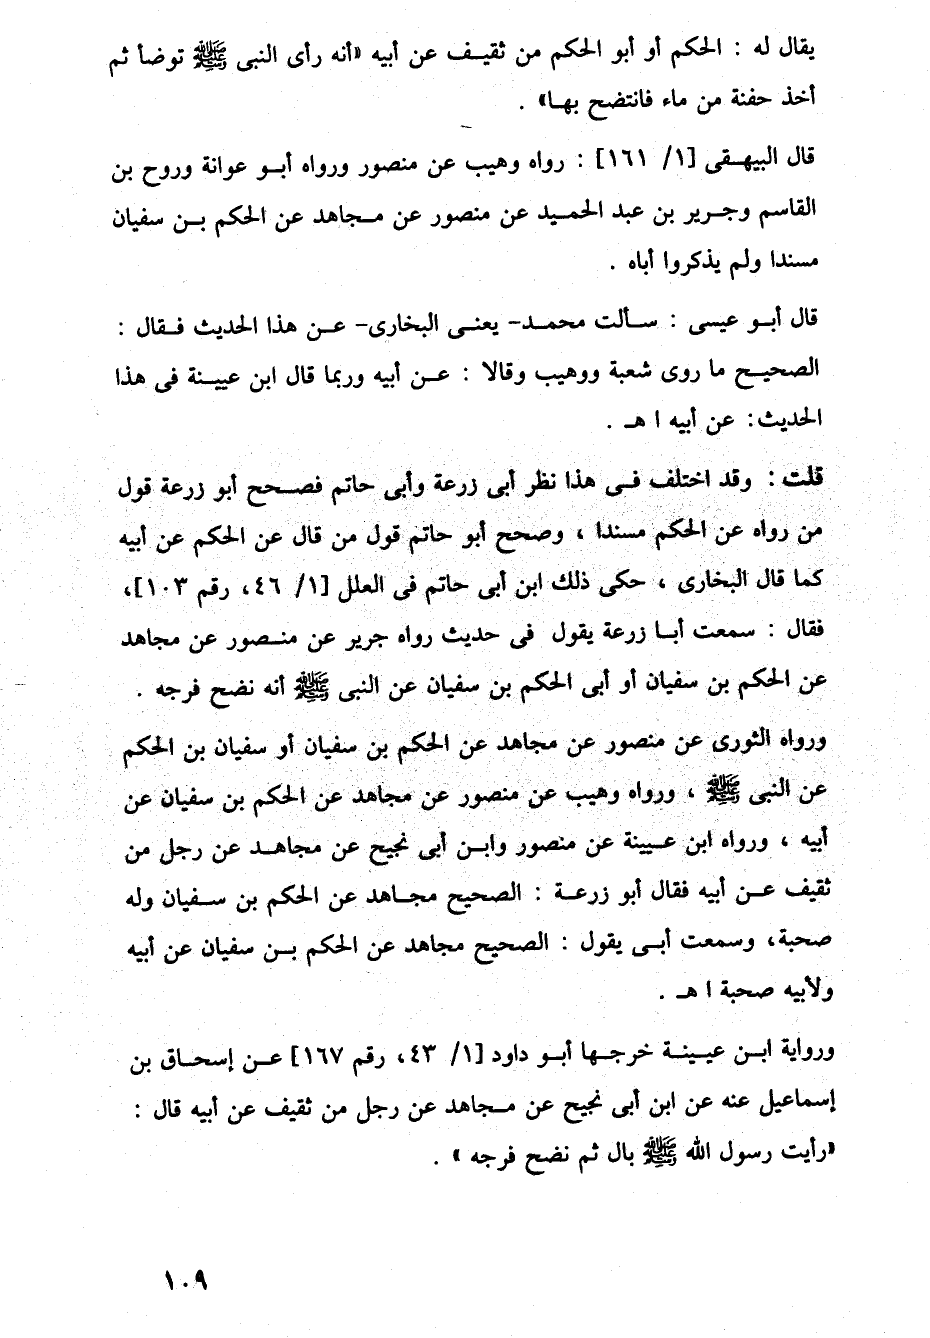 يقال له : الحكم أو أبو الحكم من ثقيـف عن أبيه «أنه رأى النبى ﷺ توضأ ثم
أخذ حفنة من ماء فانتضح بهـا» .
قال البيهـقى [١/ ١٦١] : رواه وهيب عن منصور ورواه أبـو عوانة وروح بن
القاسم وجـرير بن عبد الحميـد عن منصور عن مـجاهد عن الحكم بـن سفيان
مسندا ولم يذكروا أباه .
قال أبـو عيسى : سـألت محمـد- يعنـى البخارى- عـن هذا الحديث فـقال :
الصحيـح ما روى شعبة ووهيب وقالا : عـن أبيه وربما قال ابن عيينة فى هذا
الحديث: عن أبيه ا هـ .
قلت : وقد اختلف فـى هذا نظر أبى زرعة وأبى حاتم فصـحح أبو زرعة قول
من رواه عن الحكم مسندا ، وصحح أبو حاتم قول من قال عن الحكم عن أبيه
كما قال البخارى ، حكى ذلك ابن أبى حاتم فى العلل [١/ ٤٦، رقم ١٠٣]،
فقال : سمعت أبـا زرعة يقول فى حديث رواه جرير عن منـصور عن مجاهد
عن الحكم بن سفيان أو أبى الحكم بن سفيان عن النبى ﷺ أنه نضح فرجه .
ورواه الثورى عن منصور عن مجاهد عن الحكم بن سفيان أو سفيان بن الحكم
عن النبى ﷺ ، ورواه وهيب عن منصور عن مجاهد عن الحكم بن سفيان عن
أبيه ، ورواه ابن عـيينة عن منصور وابـن أبى نجيح عن مجاهـد عن رجل من
ثقيف عـن أبيه فقال أبو زرعـة : الصحيح مجـاهد عن الحكم بن سـفيان وله
صحبة، وسمعت أبـى يقول : الصحيح مجاهد عن الحكم بـن سفيان عن أبيه
ولأبيه صحبة ا هـ .
ورواية ابـن عيـينـة خرجـها أبـو داود [١/ ٤٣، رقم ١٦٧] عـن إسحاق بن
إسماعيل عنه عن ابن أبى نجيح عن مـجاهد عن رجل من ثقيف عن أبيه قال :
«رأيت رسول الله ﷺ بال ثم نضح فرجه » .
١٠٩